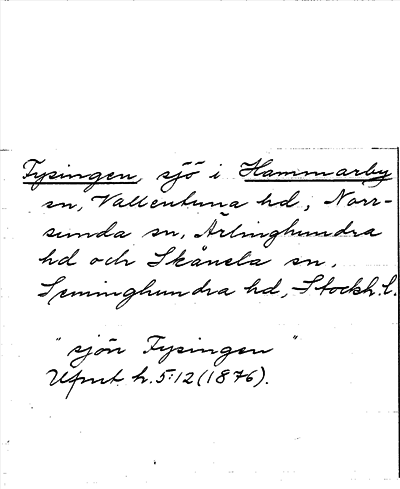 Fysingen, sjö i Hammarby
sn, Vallentuna hd, Norr-
sunda sn, Ärlinghundra
hd och Skånela sn,
Seminghundra hd, Stockh. l.
" sjön Fysingen "
Ufmt h. 5:12 (1876).